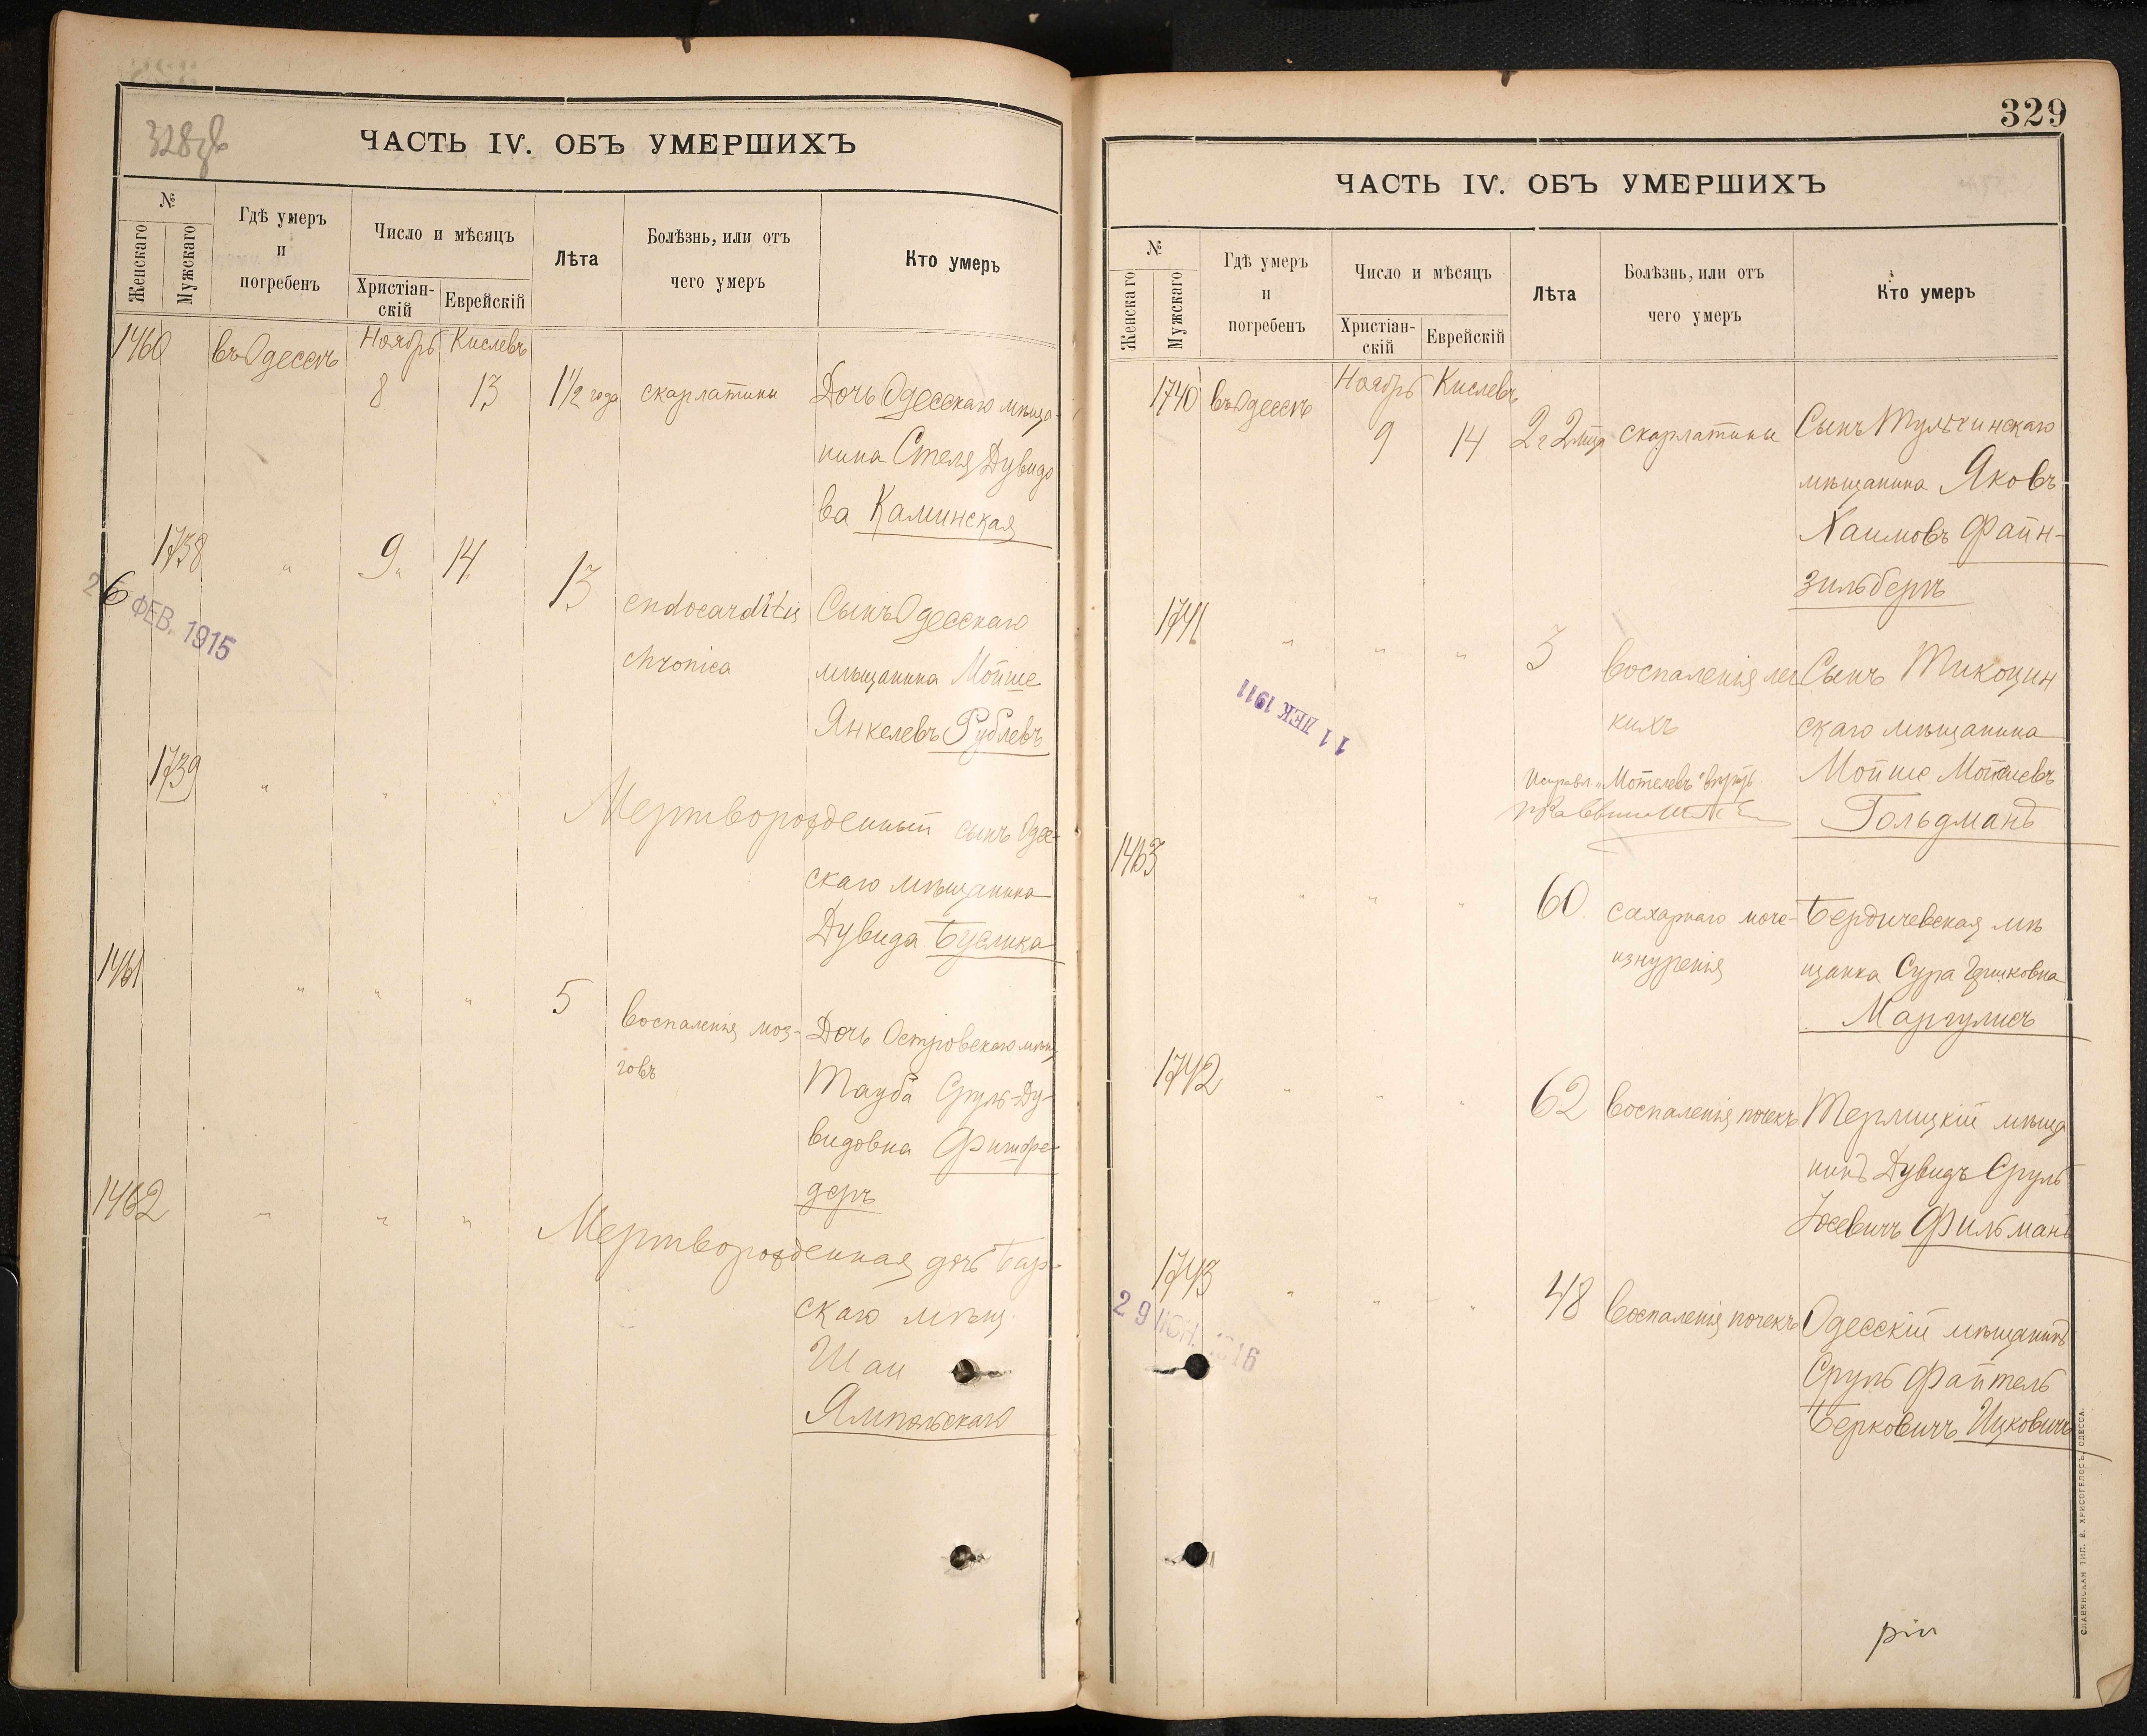 328 об
ЧАСТЬ IV. ОБЪ УМЕРШИХЪ
№
Женскаго
Мужскаго
Гдѣ умеръ
и
погребенъ
Число и мѣсяцъ
Христіан-
скій
Еврейскій
Лѣта
Болѣзнь, или отъ
чего умеръ
Кто умеръ
1460 въ Одессѣ Ноябрь Кислевъ
8 13 1½ года скарлатины Дочь Одесскаго мѣща-
нина Стеля Дувидо
ва Каминская
1738 " 9 " 14 13 endocarditis Сынъ Одесскаго
chronica мѣщанина Мойше
Янкелевъ Рублевъ
26 ФЕВ. 1915
1739 " " " Мертворожденный сынъ Одес-
скаго мѣщанина
Дувида Буслика
1461 " " " 5 воспаленія моз- Дочь Островскаго мѣщ
говъ Тауба Сруль-Ду-
видовна Фишфе-
деръ
1462 " " " Мертворожденная дочь Бар-
скаго мѣщ.
Шаи
Ямпольскаго
329
ЧАСТЬ IV. ОБЪ УМЕРШИХЪ
№
Женскаго
Мужскаго
Гдѣ умеръ
и
погребенъ
Число и мѣсяцъ
Христіан-
скій
Еврейскій
Лѣта
Болѣзнь, или отъ
чего умеръ
Кто умеръ
1740 въ Одессѣ Ноябрь Кислевъ
9 14 2 г 2 мца скарлатины Сынъ Тульчинскаго
мѣщанина Яковъ
Хаимовъ Файн-
зильберъ
1741 " " " 3 воспаленія лег Сынъ Тикоцин
кихъ скаго мѣщанина
11 ДЕК 1911
Исправл. "Мотелевъ" Мойше
Гольдманъ
1463 " " " 60 сахарнаго моче- Бердичевская мѣ
изнуренія щанка Сура Ицковна
Маргулисъ
1742 " " " 62 воспаленія почекъ Терлицкій мѣща
нинъ Дувидъ Сруль
Іосевичъ Фильманъ
1743 " " " 48 воспаленія почекъ Одесскій мѣщанинъ
29 ІЮН. 1916
Сруль Файтель
Берковичъ Ицковичъ
СЛАВЯНСКАЯ ТИП. Е. ХРИСОГЕЛОСЪ, ОДЕССА.